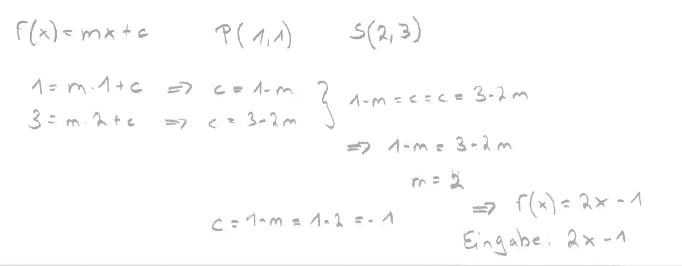 f(x) = mx + c P(1,1) S(2,3)
1 = m·1 + c => c = 1-m } 1-m = c = c = 3-2m
3 = m·2 + c => c = 3-2m
=> 1-m = 3-2m
m = 2
=> f(x) = 2x - 1
c = 1-m = 1-2 = -1
Eingabe: 2x - 1